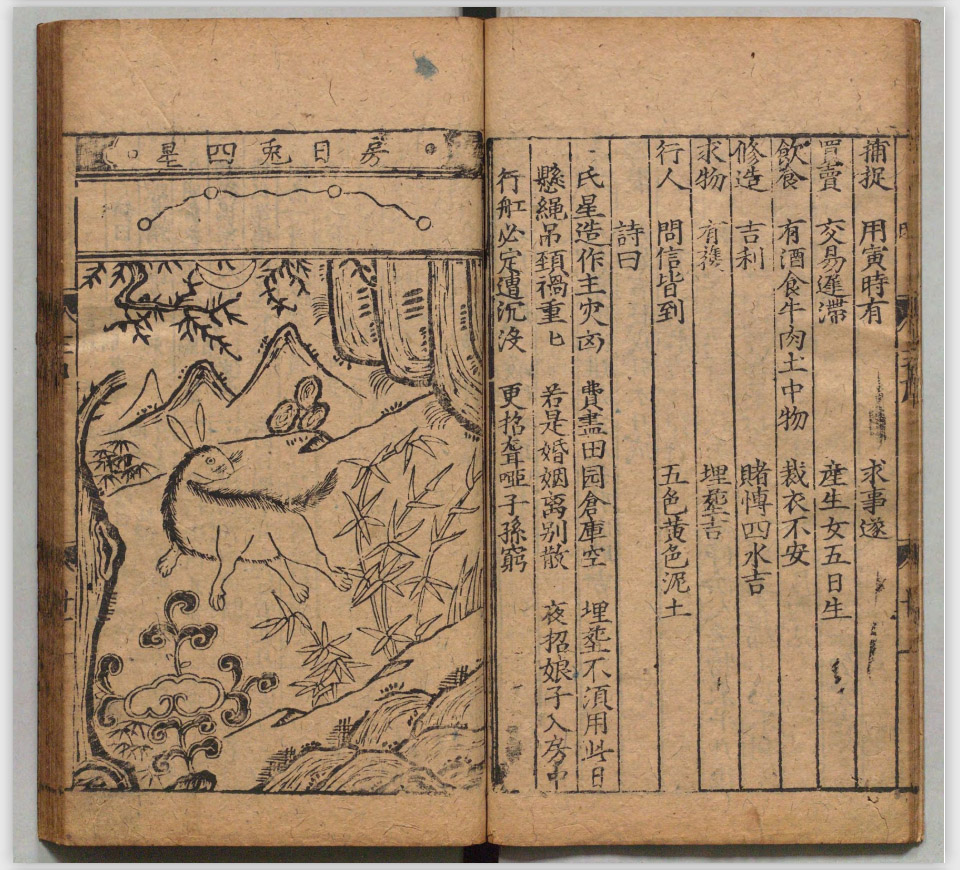 捕捉　用寅時有　求事遂
買賣　交易遲滯　産生女五日生
飲食　有酒食牛肉土中物　裁衣不安
修造　吉利　賭愽四水吉
求物　有獲　埋塟吉
行人　問信皆到　五色黄色泥土
詩曰
氐星造作主灾凶　費盡田园倉庫空　埋塟不須用此日
懸繩吊頚禍重匕　若是婚姻离别散　夜招娘子入房中
行舡必定遭沉没　更招聾啞子孫窮
房日兎四星